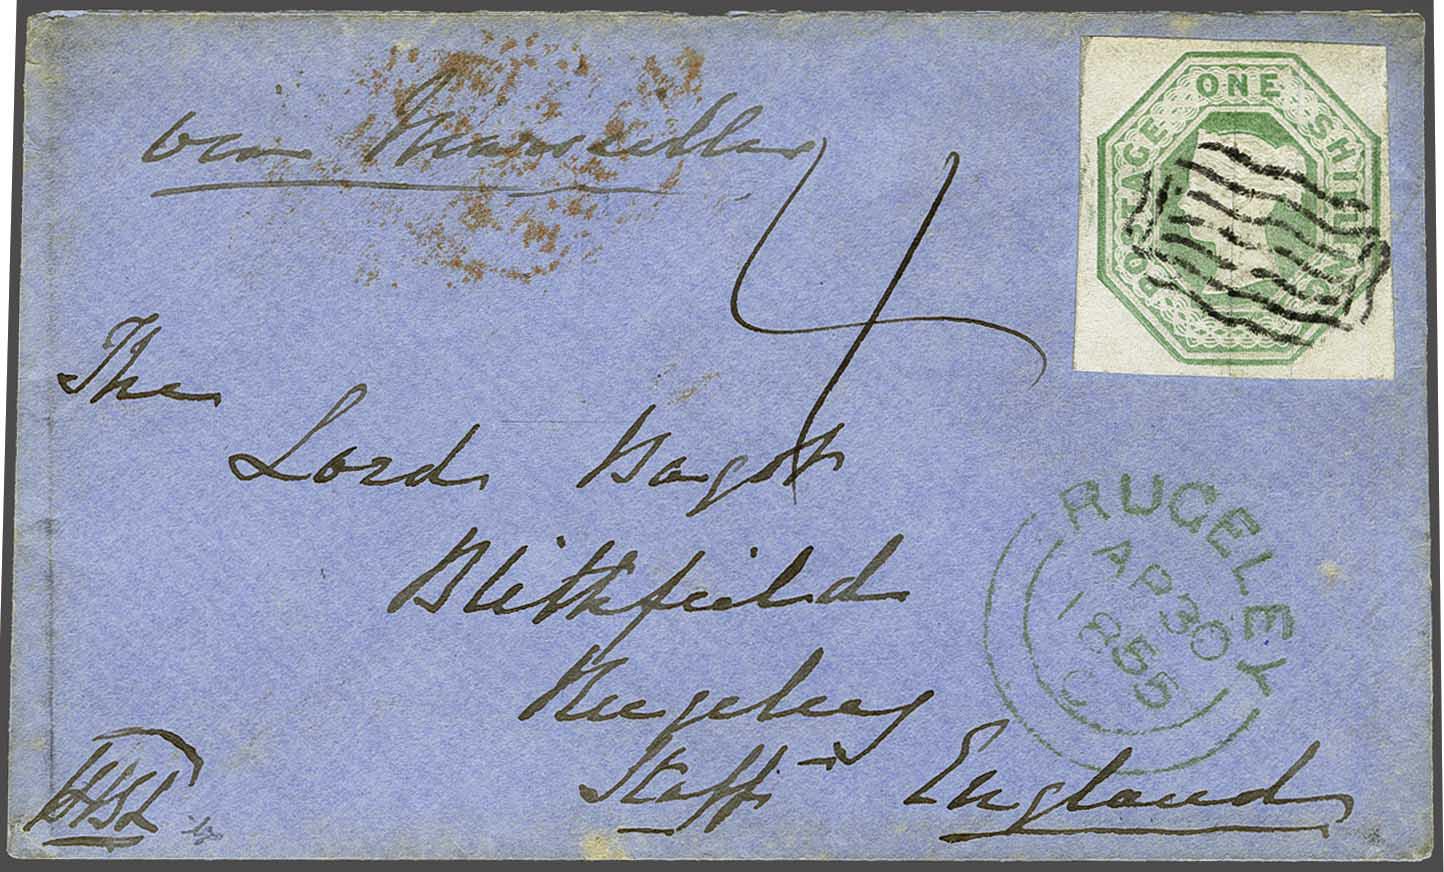 via Marseilles
POSTAGE ONE SHILLING
4
The
Lord Bagot
Blithfield
Rugeley
Staff
England
RUGELEY
AP 30
1855
C